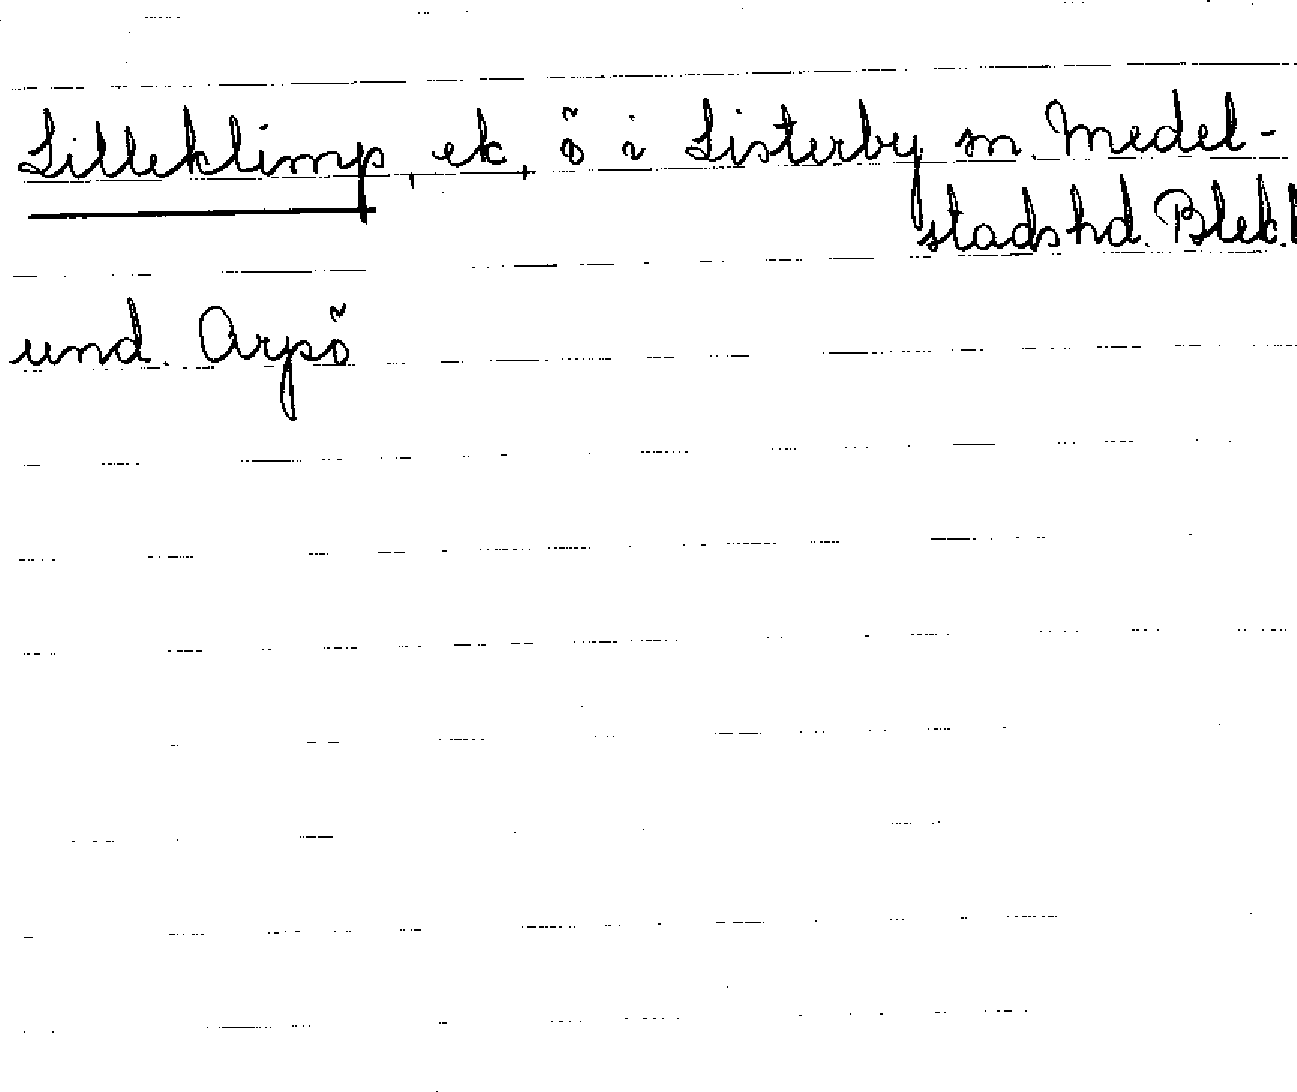 Lilleklimp, ek, ö i Listerby sn. Medel-
stadshd. Blek.l
und. Arpö